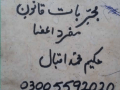 مجربات قانون
مفرد اعضا
حکیم محمد اقبال
03005592020